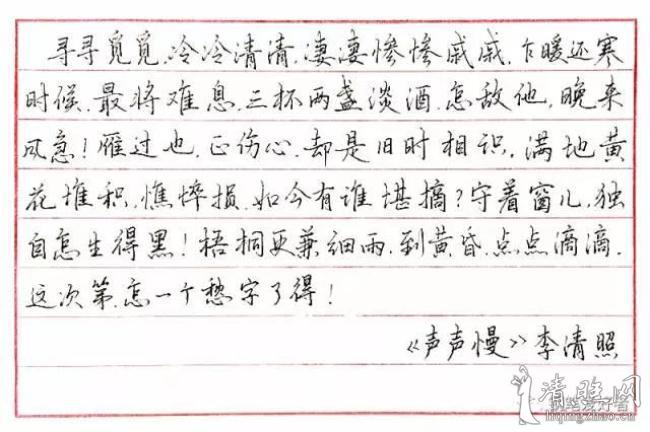 寻寻觅觅.冷冷清清.凄凄惨惨戚戚.乍暖还寒
时候.最将难息.三杯两盏淡酒.怎敌他,晚来
风急!雁过也.正伤心.却是旧时相识.满地黄
花堆积.憔悴损.如今有谁堪摘?守着窗儿.独
自怎生得黑!梧桐更兼细雨.到黄昏.点点滴滴.
这次第.怎一个愁字了得!
《声声慢》李清照
清照网
liqingzhao.cn